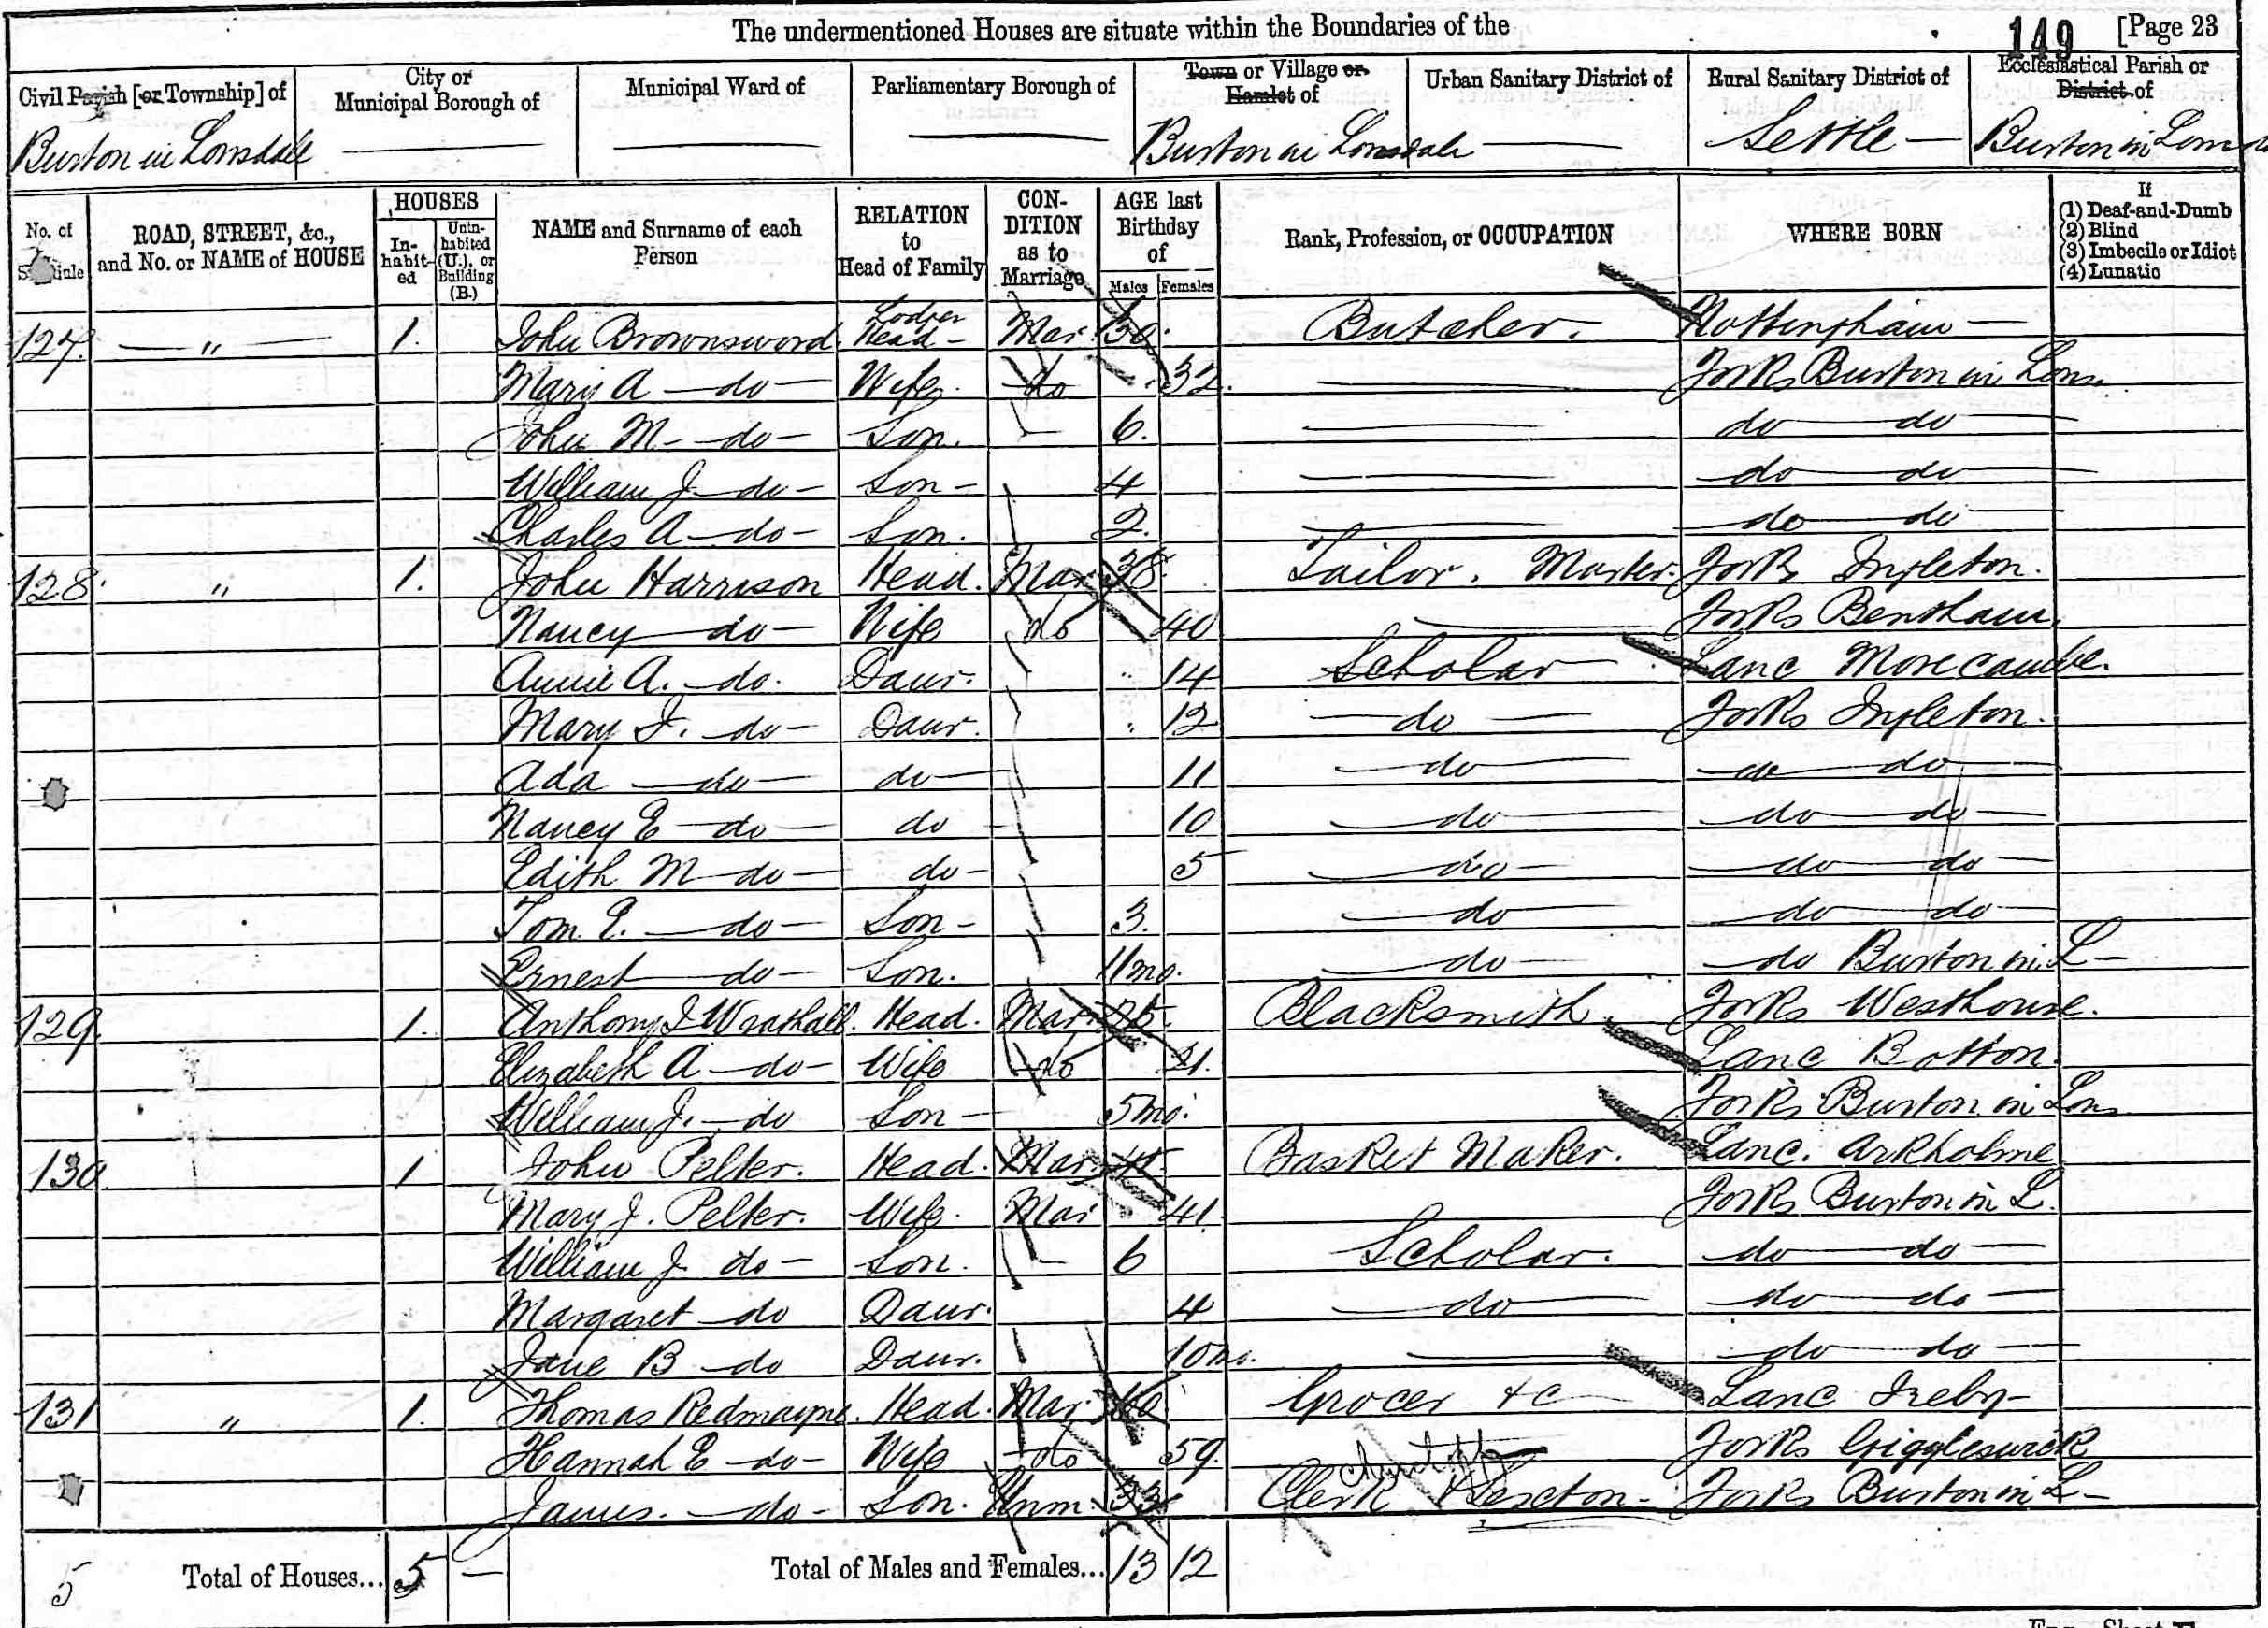 The undermentioned Houses are situate within the Boundaries of the
149 [Page 23
Civil Parish [or Township] of
City or Municipal Borough of
Municipal Ward of
Parliamentary Borough of
Town or Village or Hamlet of
Urban Sanitary District of
Rural Sanitary District of
Ecclesiastical Parish or District of
Burton in Lonsdale — — — Burton in Lonsdale — Settle — Burton in Lonsd
No. of Schedule
ROAD, STREET, &c., and No. or NAME of HOUSE
HOUSES
In-habit-ed
Unin-habited (U.), or Building (B.)
NAME and Surname of each Person
RELATION to Head of Family
CON-DITION as to Marriage
AGE last Birthday of
Males Females
Rank, Profession, or OCCUPATION
WHERE BORN
If
(1) Deaf-and-Dumb
(2) Blind
(3) Imbecile or Idiot
(4) Lunatic
Lodger
127. — " — 1. John Brownsword. Head - Mar. 30. Butcher. Nottingham —
Mary A — do — Wife. do 32. — Yorks Burton in Lons.
John M — do — Son. — 6. — do — do —
William J — do — Son — 4 — do — do —
Charles A — do — Son. 2. — do — do —
128. " 1. John Harrison Head. Mar. 38. Tailor. Master. Yorks Ingleton.
Nancy — do — Wife do 40 — Yorks Bentham.
Annie A. — do. Daur. 14 Scholar Lanc Morecambe.
Mary I. — do — Daur. 12 — do — Yorks Ingleton.
Ada — do — do — 11 — do — do — do —
Nancy E — do — do — 10 — do — do — do —
Edith M — do — do — 5 — do — do — do —
Tom E. — do — Son — 3. — do — do — do —
Ernest — do — Son. 11 mo. — do — do Burton in L —
129. 1. Anthony J Wrathall. Head. Mar. 25. Blacksmith. Yorks Westhouse.
Elizabeth A — do — Wife do 21. Lanc Botton.
William J. — do Son — 5 mo. Yorks Burton in Lons
130 1 John Pelter. Head. Mar. 45 Basket Maker. Lanc. Arkholme
Mary J. Pelter. Wife. Mar 41. Yorks Burton in L.
William J do — Son. — 6 Scholar. do — do —
Margaret — do Daur. 4 — do — do — do —
Jane B — do Daur. 10 mo. — do — do —
131 " 1. Thomas Redmayne. Head. Mar. 60 Grocer &c — Lanc Ireby —
Hannah E — do — Wife do 59. Yorks Giggleswick
Church
James. — do — Son. Unm. 33 Clerk & Sexton — Yorks Burton in L —
5 Total of Houses... 5 — Total of Males and Females... 13 12